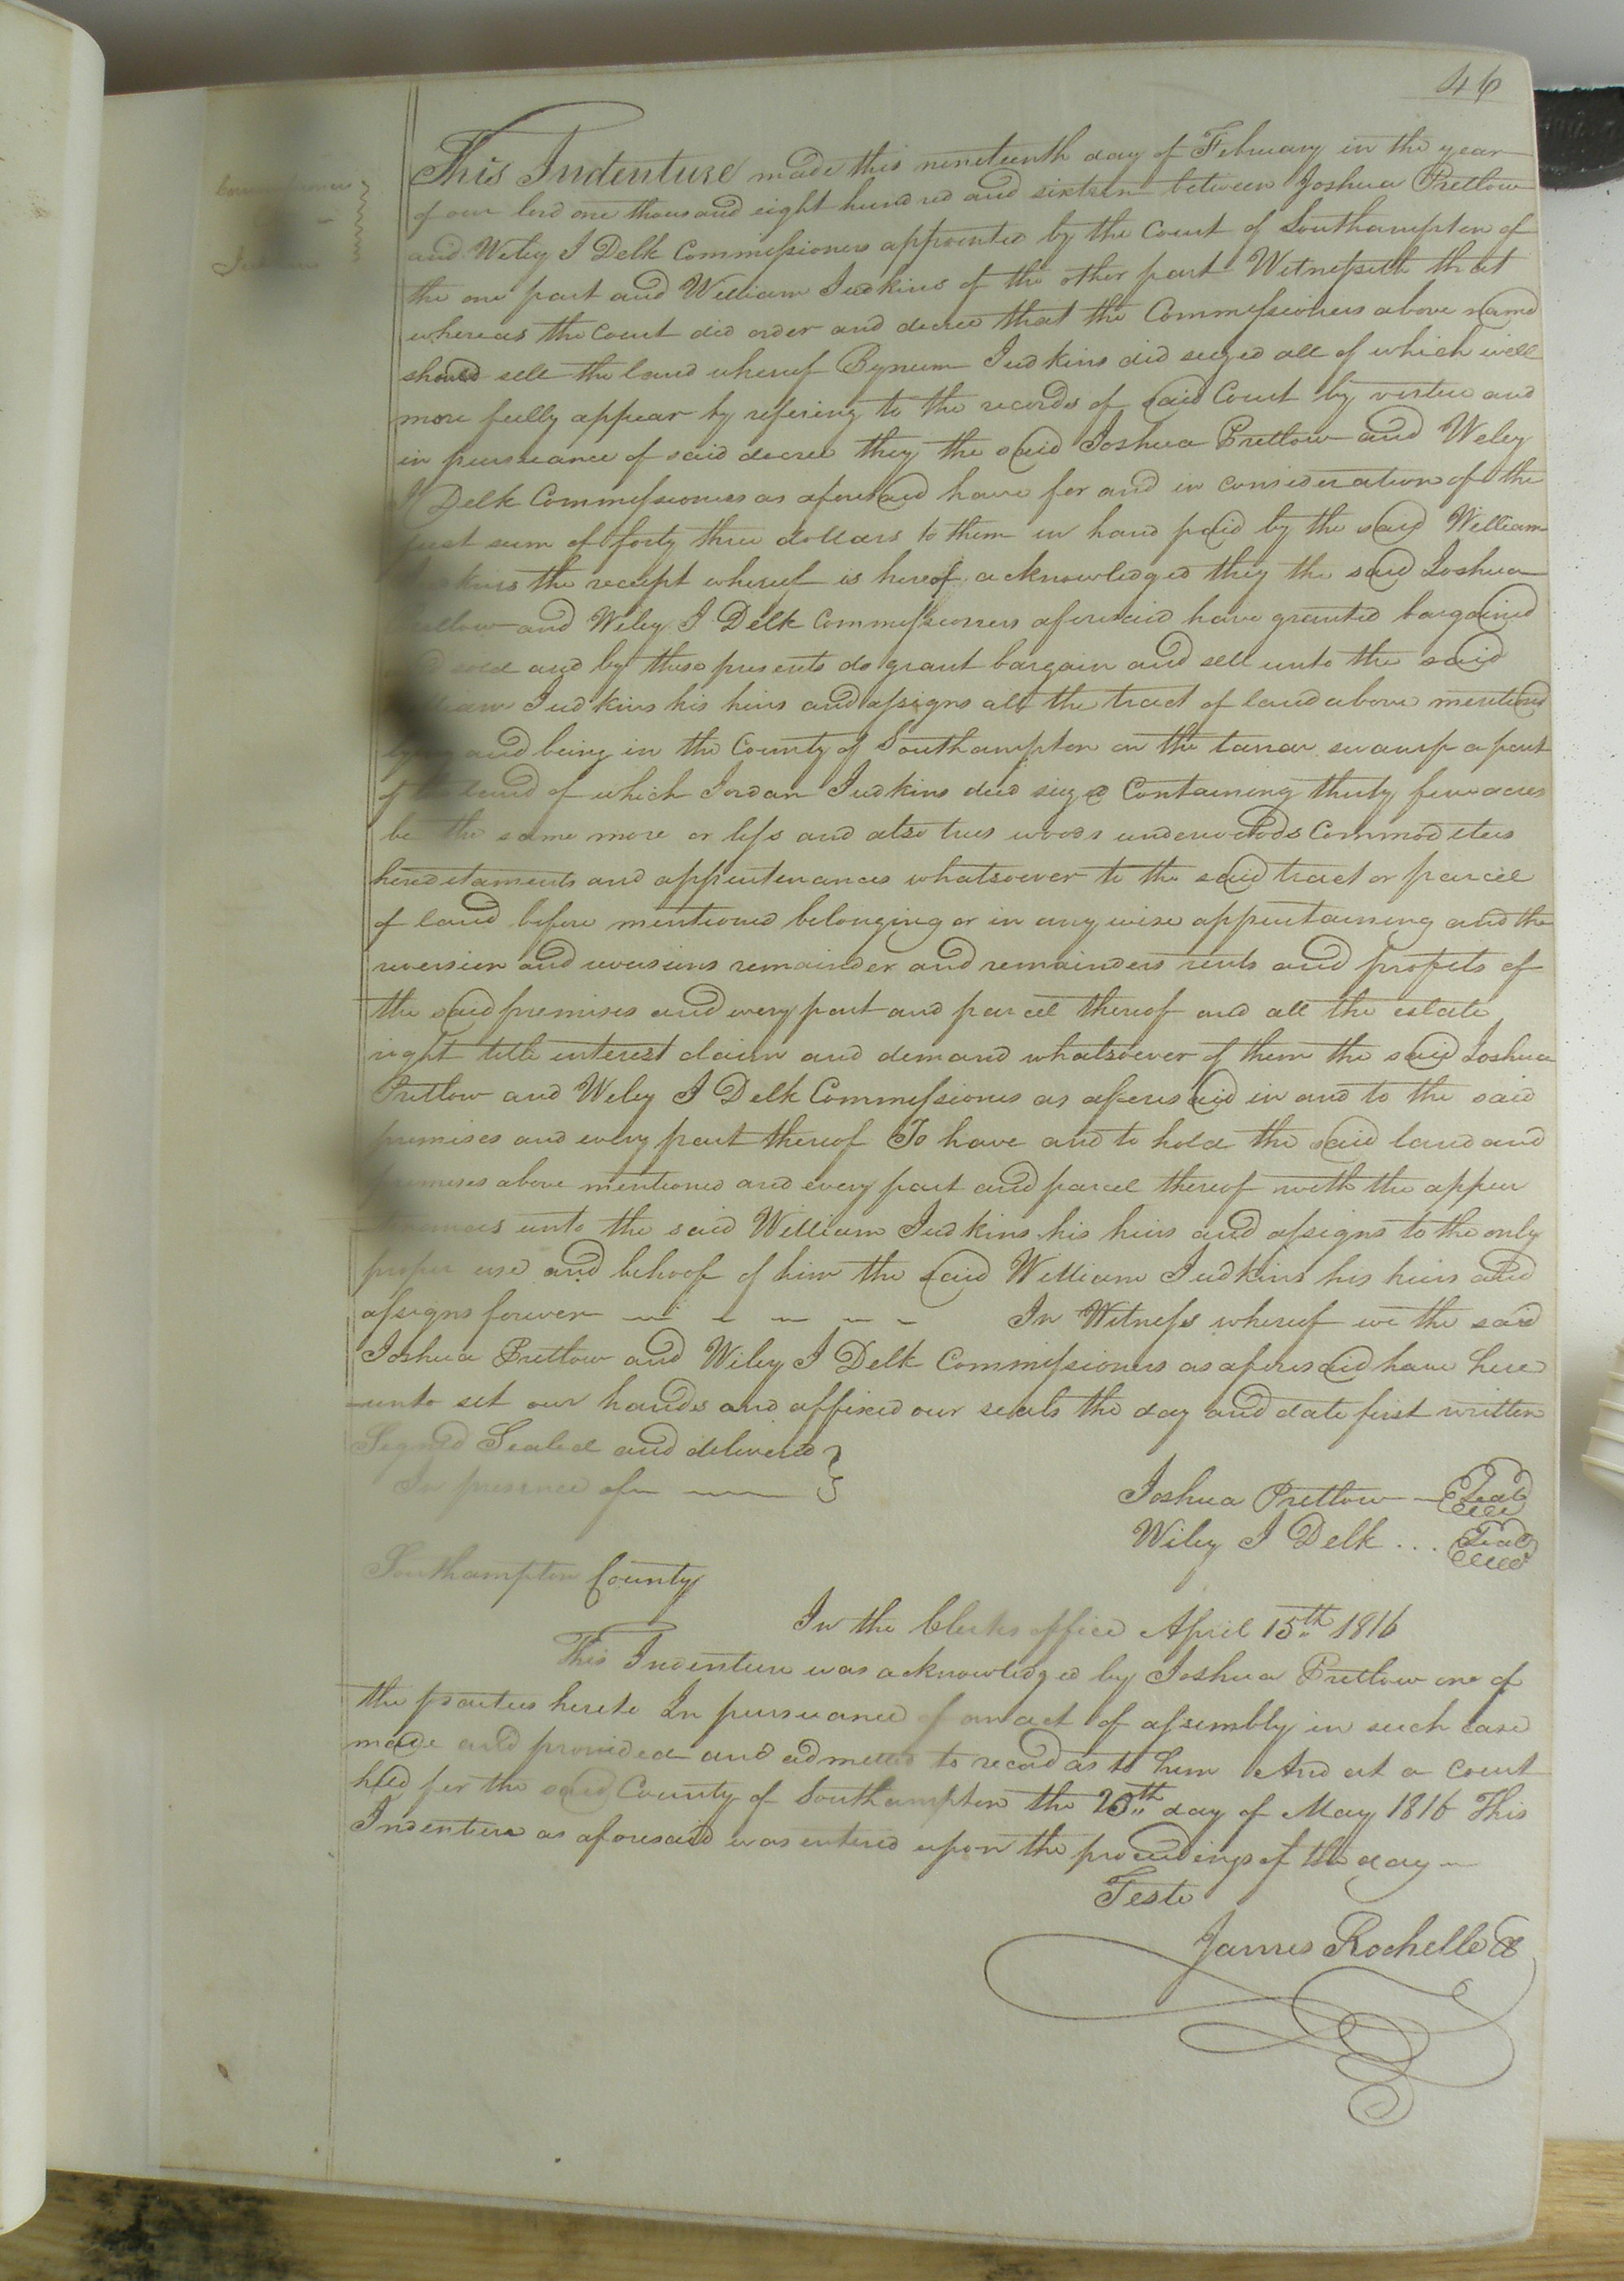 46
Commissioners
Judkins
This Indenture made this nineteenth day of February in the year
of our lord one thousand eight hundred and sixteen between Joshua Pretlow
and Wiley J Delk Commissioners appointed by the Court of Southampton of
the one part and William Judkins of the other part Witnesseth that
whereas the Court did order and decree that the Commissioners above named
should sell the land whereof Bynum Judkins did seized all of which will
more fully appear by refering to the records of said Court by virtue and
in pursuance of said decree they the said Joshua Pretlow and Wiley
J Delk Commissioners as aforesaid have for and in consideration of the
just sum of forty three dollars to them in hand paid by the said William
the receipt whereof is hereof acknowledged they the said Joshua
and Wiley J Delk Commissioners aforesaid have granted bargained
sold and by these presents do grant bargain and sell unto the said
Judkins his heirs and assigns all the tract of land above mentiond
and being in the County of Southampton on the tarrar swamp a part
of land of which Jordan Judkins died siezed Containing thirty five acres
be the same more or less and also trees woods underwoods Commodities
hereditaments and appurtenances whatsoever to the said tract or parcel
of land before mentioned belonging or in any wise appurtaining and the
reversion and reversions remainder and remainders rents and profits of
the said premises and every part and parcel thereof and all the estate
right title interest claim and demand whatsoever of them the said Joshua
Pretlow and Wiley J Delk Commissioners as aforesaid in and to the said
premises and every part thereof To have and to hold the said land and
premises above mentioned and every part and parcel thereof with the appur
unto the said William Judkins his heirs and assigns to the only
proper use and behoof of him the said William Judkins his heirs and
assigns forever — — — — — In Witness whereof we the said
Joshua Pretlow and Wiley J Delk Commissioners as aforesaid have here
unto set our hands and affixed our seals the day and date first written
Signed Sealed and delivered
In presence of
Joshua Pretlow — Seal
Wiley J Delk ... Seal
Southampton County
In the Clerks office April 15th 1816
This Indenture was acknowledged by Joshua Pretlow one of
the parties hereto In pursuance of an act of assembly in such case
made and provided and admitted to record as to him And at a Court
held for the said County of Southampton the 20th day of May 1816 This
Indenture as aforesaid was entered upon the proceedings of the day —
Teste
James Rochelle Cl